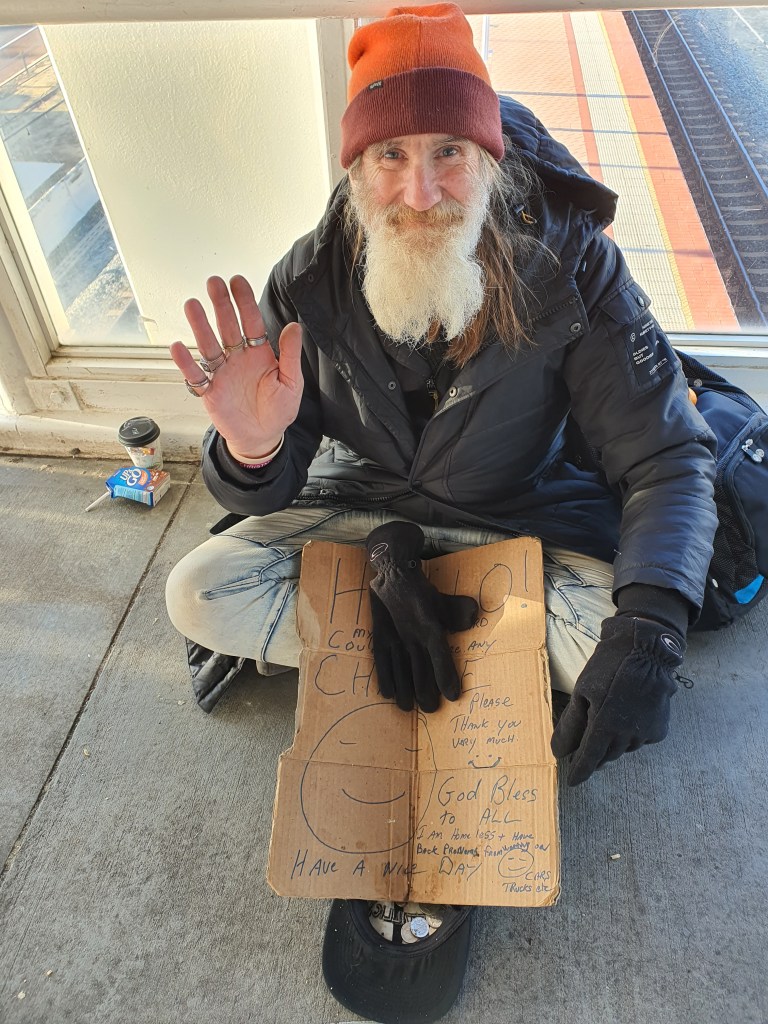 H LO!
MY
COUL ANY
CH E
PLEASE
THANK YOU
VERY MUCH.
GOD BLESS
TO ALL
I AM HOMELESS + HAVE
BACK PROBLEMS FROM WORKING ON
CARS
TRUCKS etc
HAVE A NICE DAY